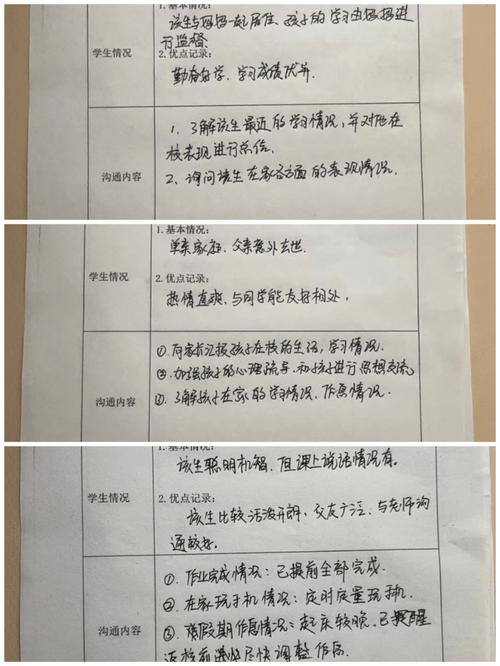 1.基本情况:
该生与妈妈一起居住、孩子的学习由妈妈进
行监督.
学生情况
2.优点记录:
勤奋好学、学习成绩优异.
1、了解该生最近的学习情况,并对他在
校表现进行总结.
沟通内容
2、询问该生在家各方面的表现情况.
1.基本情况:
单亲家庭,父亲意外去世.
学生情况
2.优点记录:
热情直爽、与同学能友好相处.
①.向家长汇报孩子在校的生活,学习情况.
②.加强孩子的心理疏导、和孩子进行思想交流.
沟通内容
③.了解孩子在家的学习情况、作息情况.
1.基本情况:
该生聪明机智、但课上说话情况有。
学生情况
2.优点记录:
该生比较活泼开朗、交友广泛、与老师沟
通较好.
①.作业完成情况:已提前全部完成.
②.在家玩手机情况:定时定量玩手机.
沟通内容
③.猜假期作息情况:起床较晚、已提醒
返校前尽快调整作息.